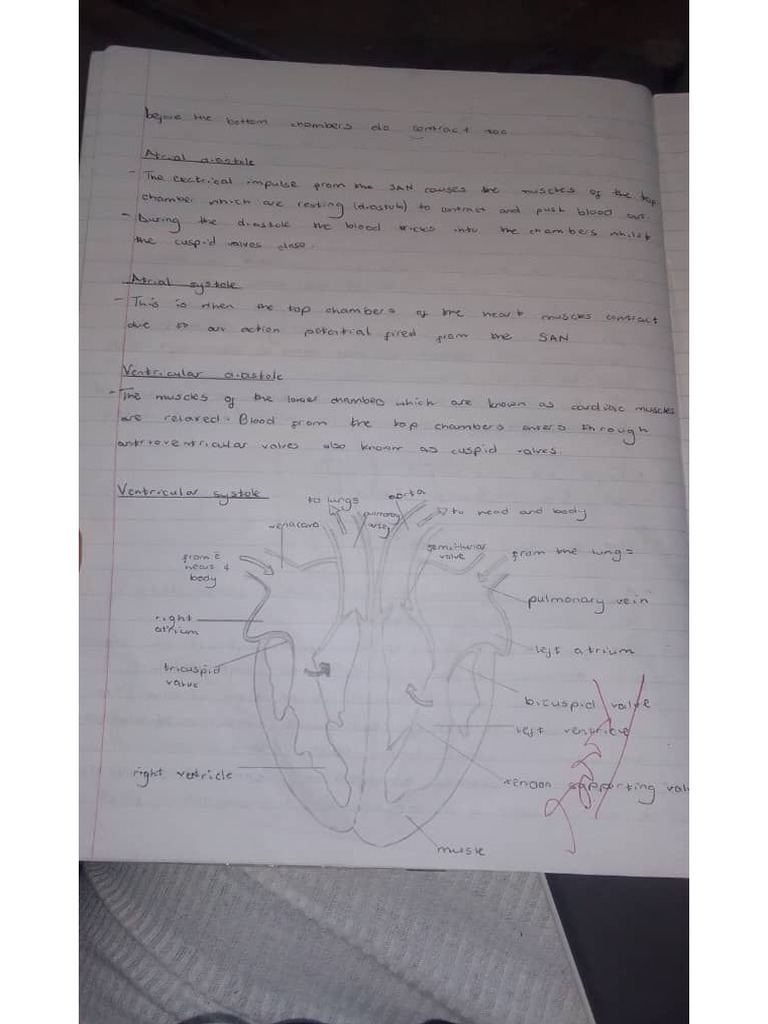 before the bottom chambers do contract too
Atrial diastole
- The electrical impulse from the SAN causes the muscles of the top
chamber which are resting (diastole) to contract and push blood out.
- During the diastole the blood trickles into the chambers whilst
the cuspid valves close.
Atrial systole
- This is when the top chambers of the heart muscles contract
due to an action potential fired from the SAN
Ventricular diastole
- The muscles of the lower chambers which are known as cardiac muscles
are relaxed. Blood from the top chambers enters through
valves also known as cuspid valves.
Ventricular systole
to lungs
aorta
pulmonary
to head and body
venacava
semi-lunar
valve
from the lungs
from
head &
body
pulmonary vein
right
atrium
left atrium
tricuspid
valve
bicuspid valve
left ventricle
right ventricle
tendon supporting valv
muscle